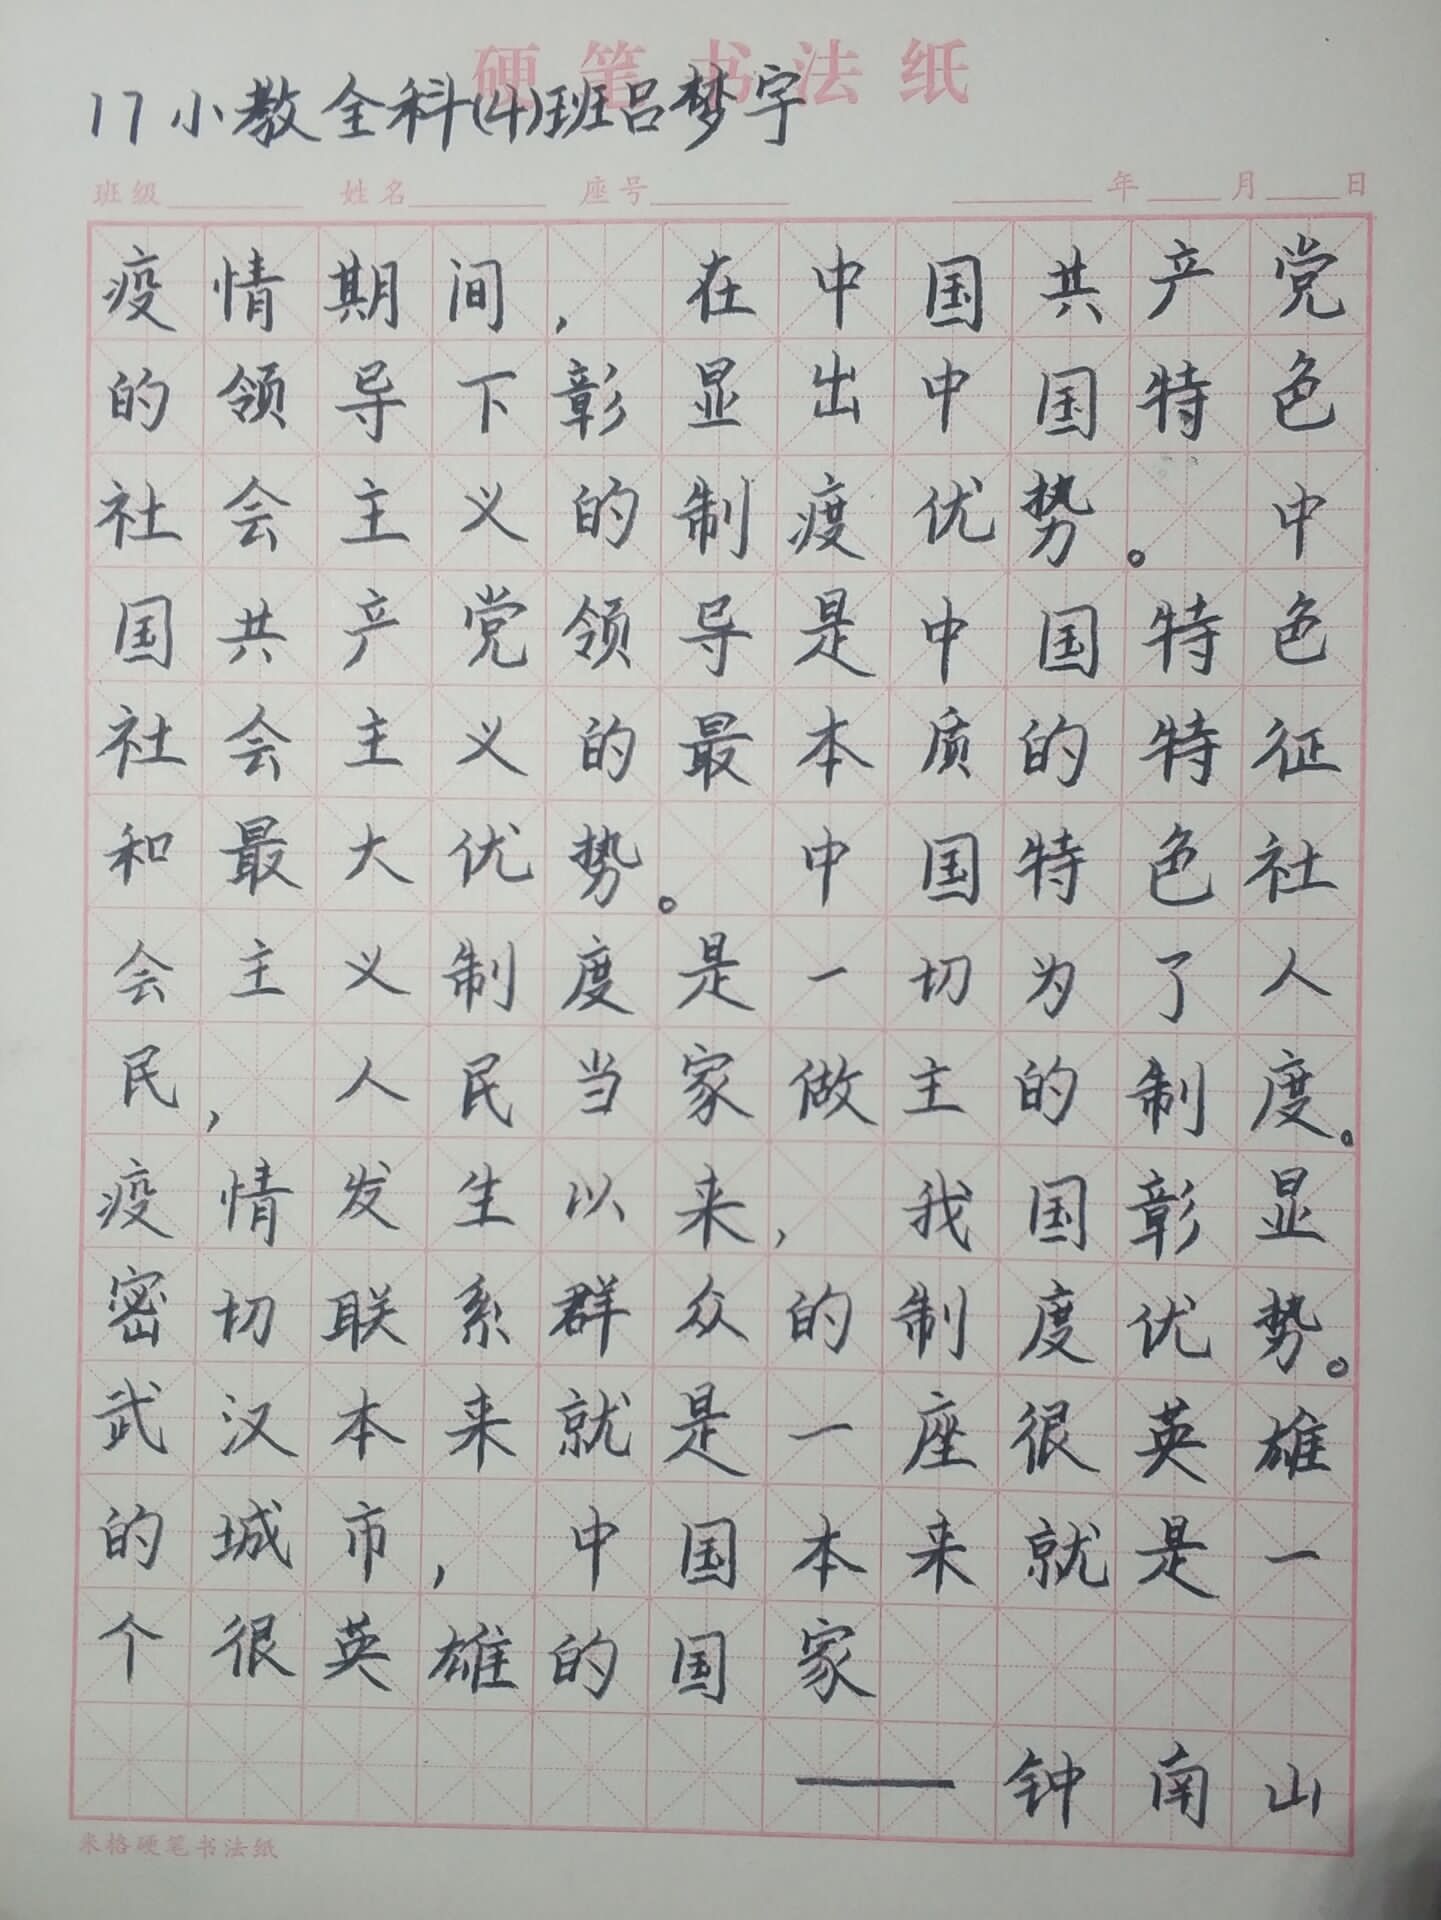 硬笔书法纸
17小教全科(4)班吕梦宇
班级 姓名 座号 年 月 日
疫情期间，在中国共产党
的领导下彰显出中国特色
社会主义的制度优势。中
国共产党领导是中国特色
社会主义的最本质的特征
和最大优势。中国特色社
会主义制度是一切为了人
民，人民当家做主的制度。
疫情发生以来，我国彰显
密切联系群众的制度优势。
武汉本来就是一座很英雄
的城市，中国本来就是一
个很英雄的国家
——钟南山
米格硬笔书法纸